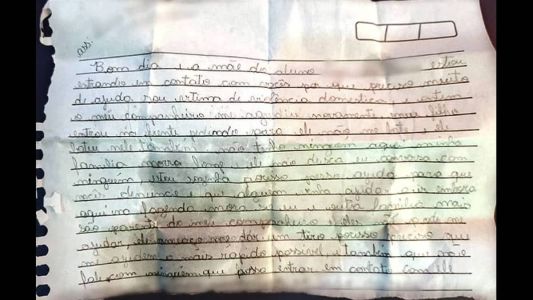 ass:
Bom dia e a mãe do aluno estou
entrando em contato com vocês por que preciso muito
de ajuda sou vitima de violência domestica e ontem
o meu companheiro me agrediu novamente meu filho
entrou na frente pedindo para ele não me bate e ele
bateu nele também não tenho ninguem aqui minha
familia mora longe e ele não deixa eu conversa com
ninguém estou pedindo socorro ajuda para que
vocês denuncie e que alguem venha ajudar a ir embora
aqui na fazenda mora eu e outra familia mais
são parente do meu companheiro e eles não
ajudar ele ameaço me dar um tiro por isso preciso que
me ajudem o mais rapido possivel também que não
fale com ninguem que possa entrar em contato com ele